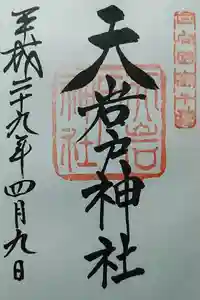 天岩戸神社
平成二十九年四月九日